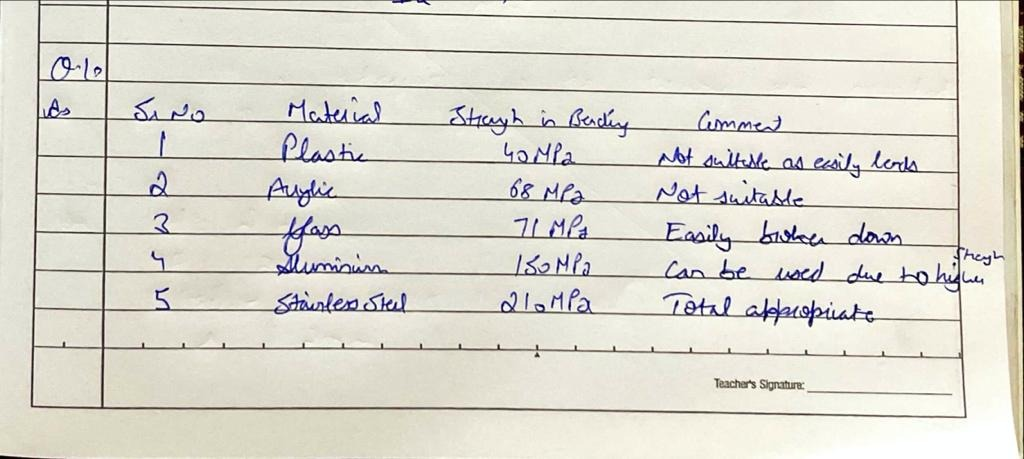 Q.10
As Sr No Material Strength in Bending Comment
1 Plastic 40 MPa Not suitable as easily bends
2 Acrylic 68 MPa Not suitable
3 Glass 71 MPa Easily broken down
4 Aluminium 150 MPa Can be used due to higher strength
5 Stainless Steel 210 MPa Total appropriate
Teacher's Signature: